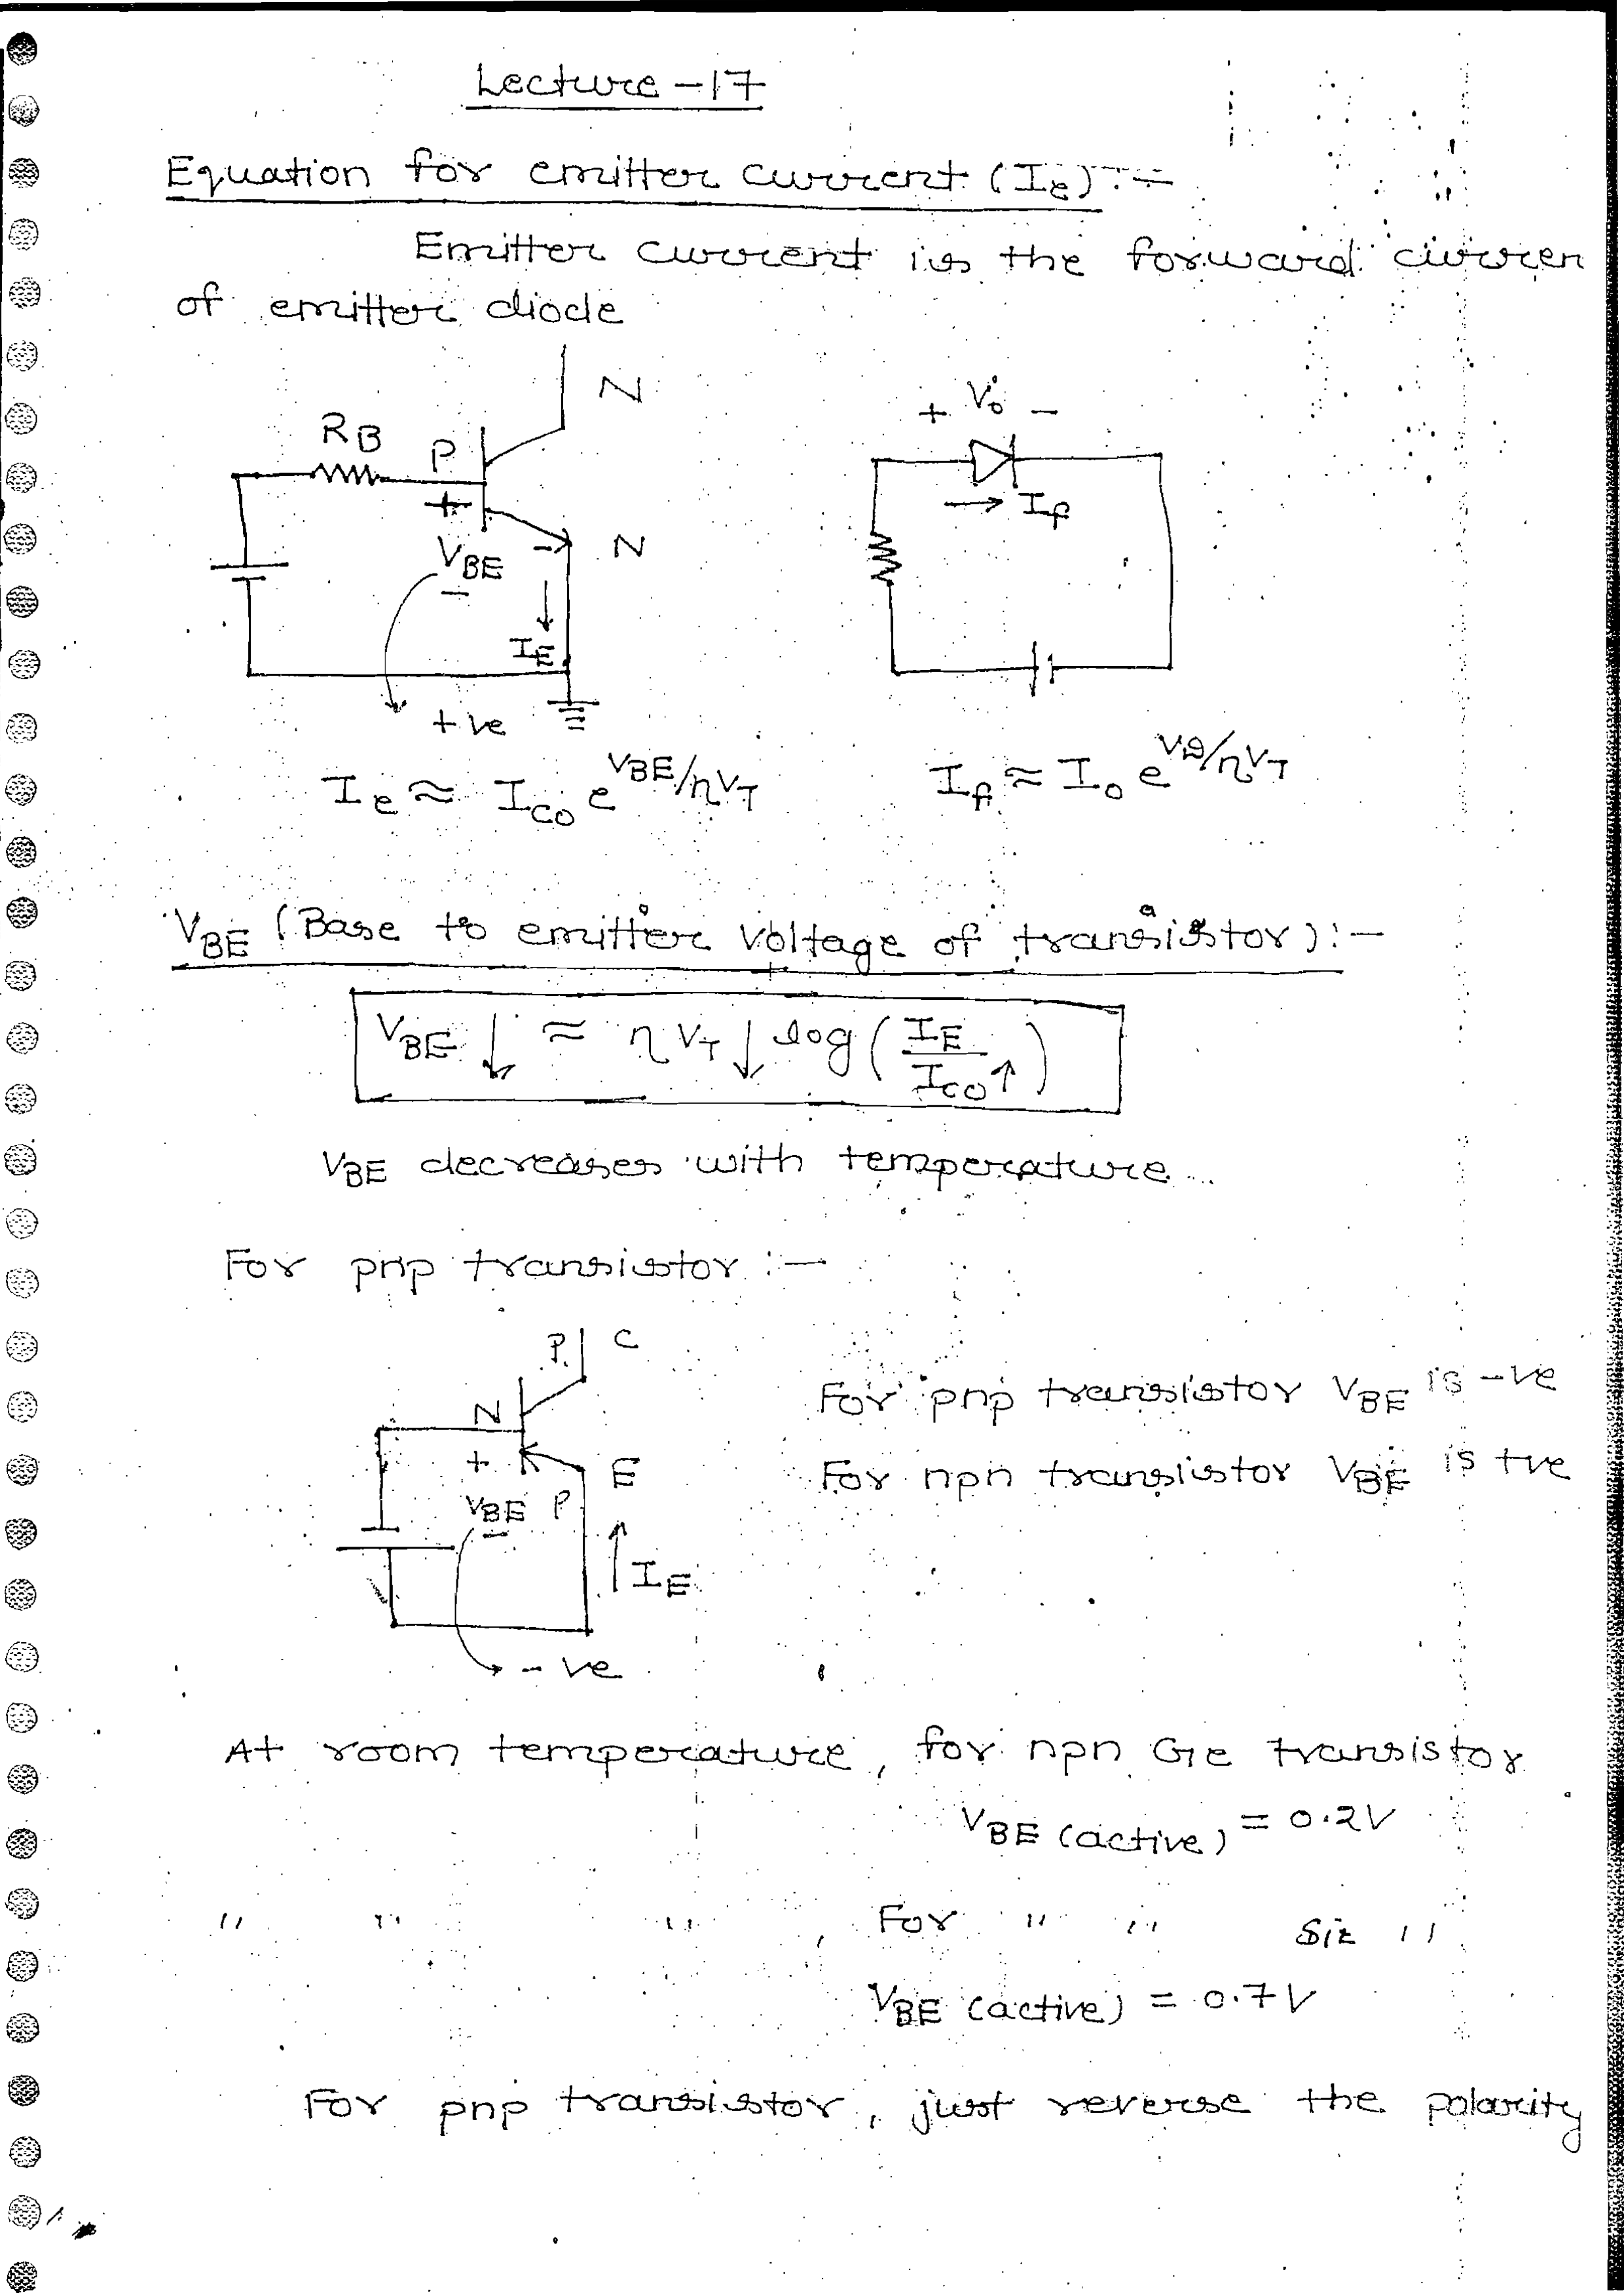 Lecture -17
Equation for emitter current (I_E) :-
Emitter current is the forward curren
of emitter diode
N
R_B P
+
V_BE
-
- N
I_E
+ve
+ V_0 -
→ I_f
I_e ≈ I_CO e^{V_BE/ηV_T}
I_f ≈ I_0 e^{V_D/ηV_T}
V_BE (Base to emitter voltage of transistor) :-
V_BE ↓ ≈ η V_T ↓ log (I_E / I_CO ↑)
V_BE decreases with temperature
For pnp transistor :-
P C
N
+
E
V_BE P
-
↑ I_E
- ve
For pnp transistor V_BE is -ve
For npn transistor V_BE is +ve
At room temperature, for npn Ge transistor
V_BE (active) = 0.2V
" " " , For " " Si "
V_BE (active) = 0.7V
For pnp transistor, just reverse the polarity